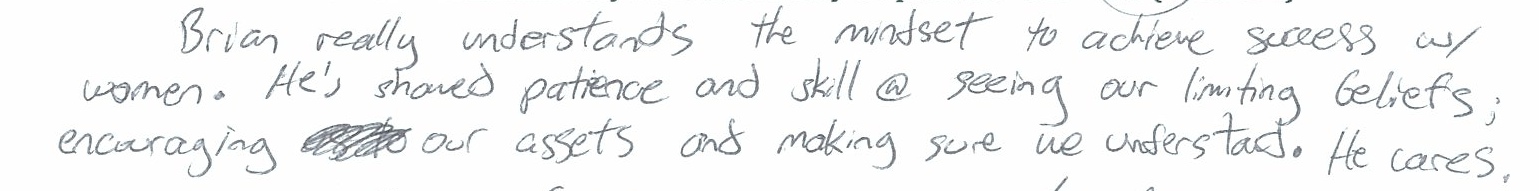 Brian really understands the mindset to achieve success w/
women. He's showed patience and skill @ seeing our limiting beliefs;
encouraging our assets and making sure we understand. He cares.